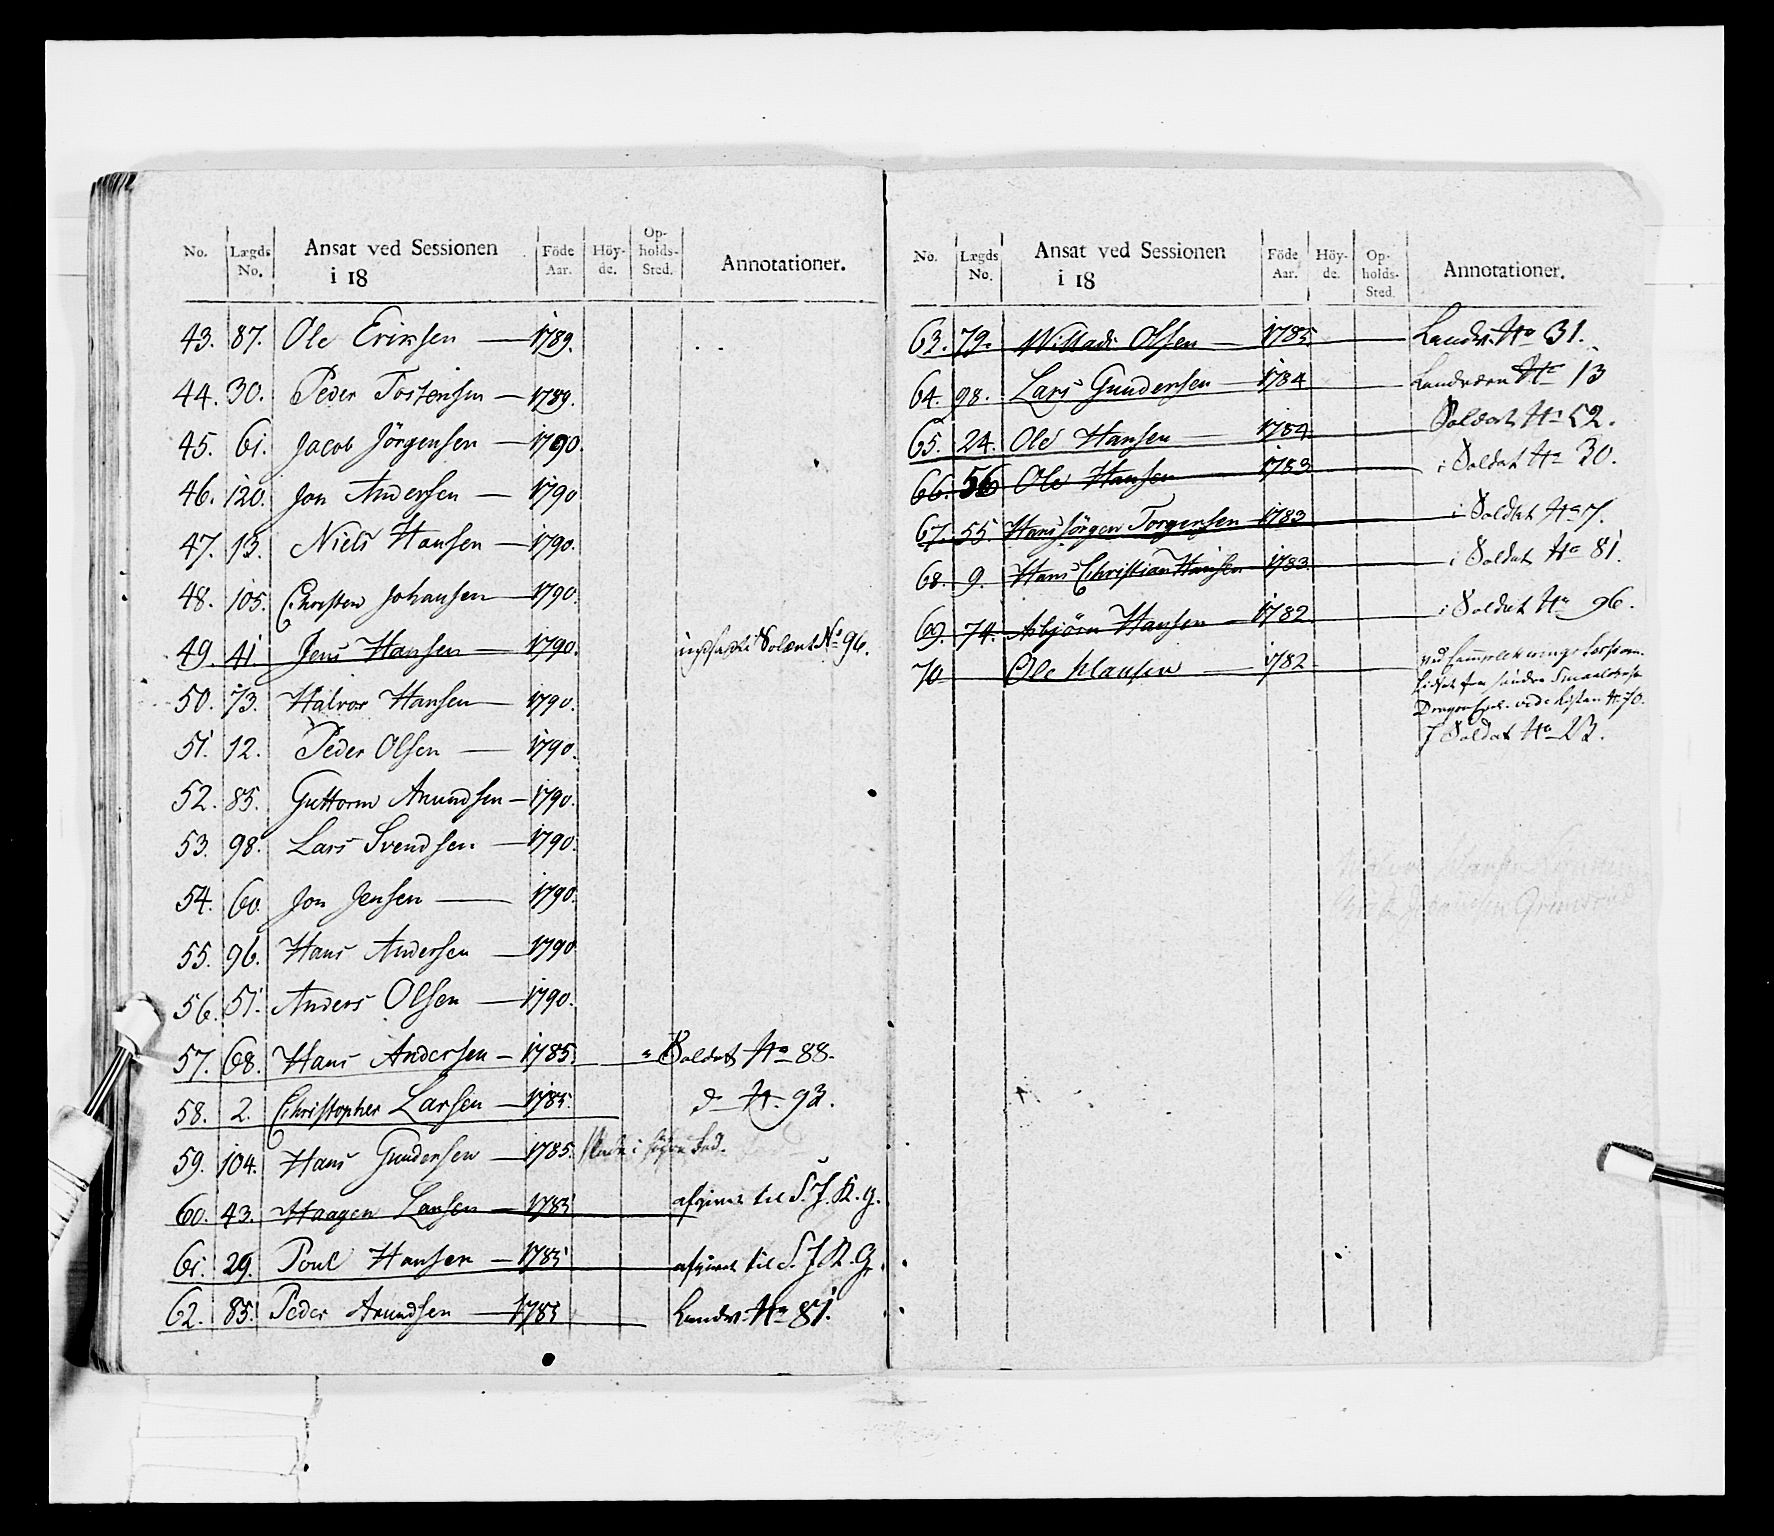 No. Lægds No. Ansat ved Sessionen i 18 Föde Aar. Höy- de. Op- holds- Sted. Annotationer.
43. 87. Ole Ericksen — 1789.
44. 30. Peder Tostensen — 1789.
45. 61. Jacob Jörgensen — 1790.
46. 120. Jon Andersen — 1790
47. 13. Niels Hansen — 1790.
48. 105. Christen Johansen — 1790.
49. 41. Jens Hansen — 1790. Soldat No 96.
50. 73. Halvor Hansen — 1790.
51. 12. Peder Olsen — 1790.
52. 85. Guttorm Amundsen — 1790.
53. 98. Lars Svendsen — 1790.
54. 60. Jon Jensen — 1790.
55. 96. Hans Andersen — 1790
56. 51. Anders Olsen — 1790.
57. 68. Hans Andersen — 1785. Soldat No 88.
58. 2. Christopher Larsen — 1785. d— No 93.
59. 104. Hans Gundersen — 1785.
60. 43. Haagen Larsen — 1785 til S. J. R. G.
61. 29. Poul Hansen — 1785 til S. J. R. G.
62. 85. Peder Amundsen — 1785 Landv. No 81.
No. Lægds No. Ansat ved Sessionen i 18 Föde Aar. Höy- de. Op- holds- Sted. Annotationer.
63. 79. Olsen — 1785. Landv. No 31.
64. 98. Lars Gundersen — 1784 Landværn No 13
65. 24. Ole Hansen — 1784. Soldat No 52.
66. 56 Ole Hansen 1783 i Soldat No 30.
67. 55. Hans Jörgen Torgersen — 1783 i Soldat No 7.
68. 9. Hans Christian Hansen — 1783. i Soldat No 81.
69. 74. Asbjörn Hansen — 1782. i Soldat No 96.
70 Ole Clausen — 1782
fra söndre
Dragon No 70.
Soldat No 23.